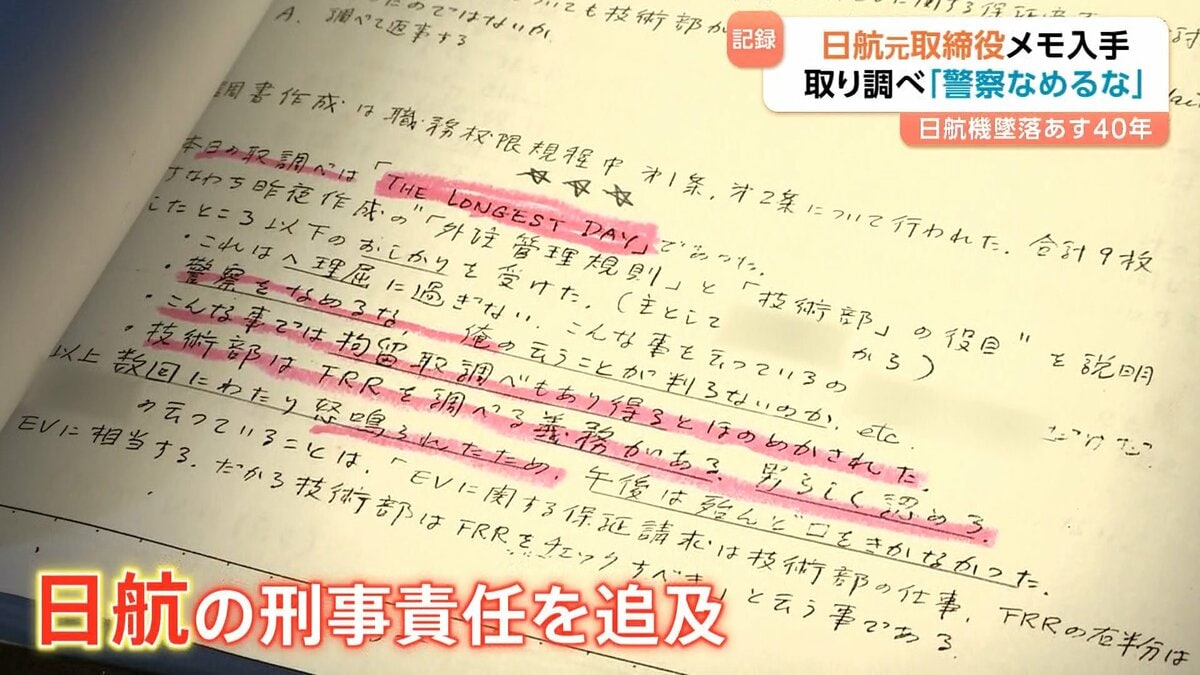 記録
日航元取締役メモ入手
取り調べ「警察なめるな」
日航機墜落あす40年
たのではないか
A. 調べて返事する
調書作成は職務权限規程中 才1条、才2条について行われた. 合計9枚
本日の取調べは「THE LONGEST DAY」であった.
すなわち昨夜作成の"「外注管理規則」と「技術部」の役目"を説明
したところ以下のおしかりを受けた. (主として から)
・これはヘ理屈に過ぎない. こんな事を云っているの だけだ
・警察をなめるな. 俺の云うことが判らないのか. etc.
・こんな事では拘留取調べもあり得るとほのめかされた.
・技術部はFRRを調べる義務がある. 男らしく認めろ.
以上数回にわたり怒鳴られたため. 午後は殆んど口をきかなかった.
の云っていることは、「EVに関する保証請求は技術部の仕事. FRRの右半分は
EVに相当する. だから技術部はFRRをチェックすべき」と云う事である.
日航の刑事責任を追及